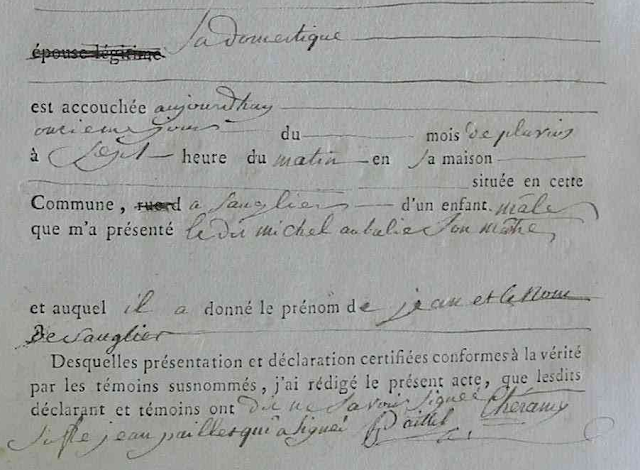 épouse légitime Sa domestique
est accouchée aujourdhuy
onzieme jour du mois de pluvios
à Sept heure du matin en Sa maison
située en cette
Commune, rue d a Sanglier d'un enfant male
que m'a présenté le dit michel aubalie Son maitre
et auquel il a donné le prénom de jean et le Nom
De Sanglier
Desquelles présentation et déclaration certifiées conformes à la vérité
par les témoins susnommés, j'ai rédigé le présent acte, que lesdits
déclarant et témoins ont dit ne Savoir Signer
jean paillet qui a Signé Paillet Chéramy